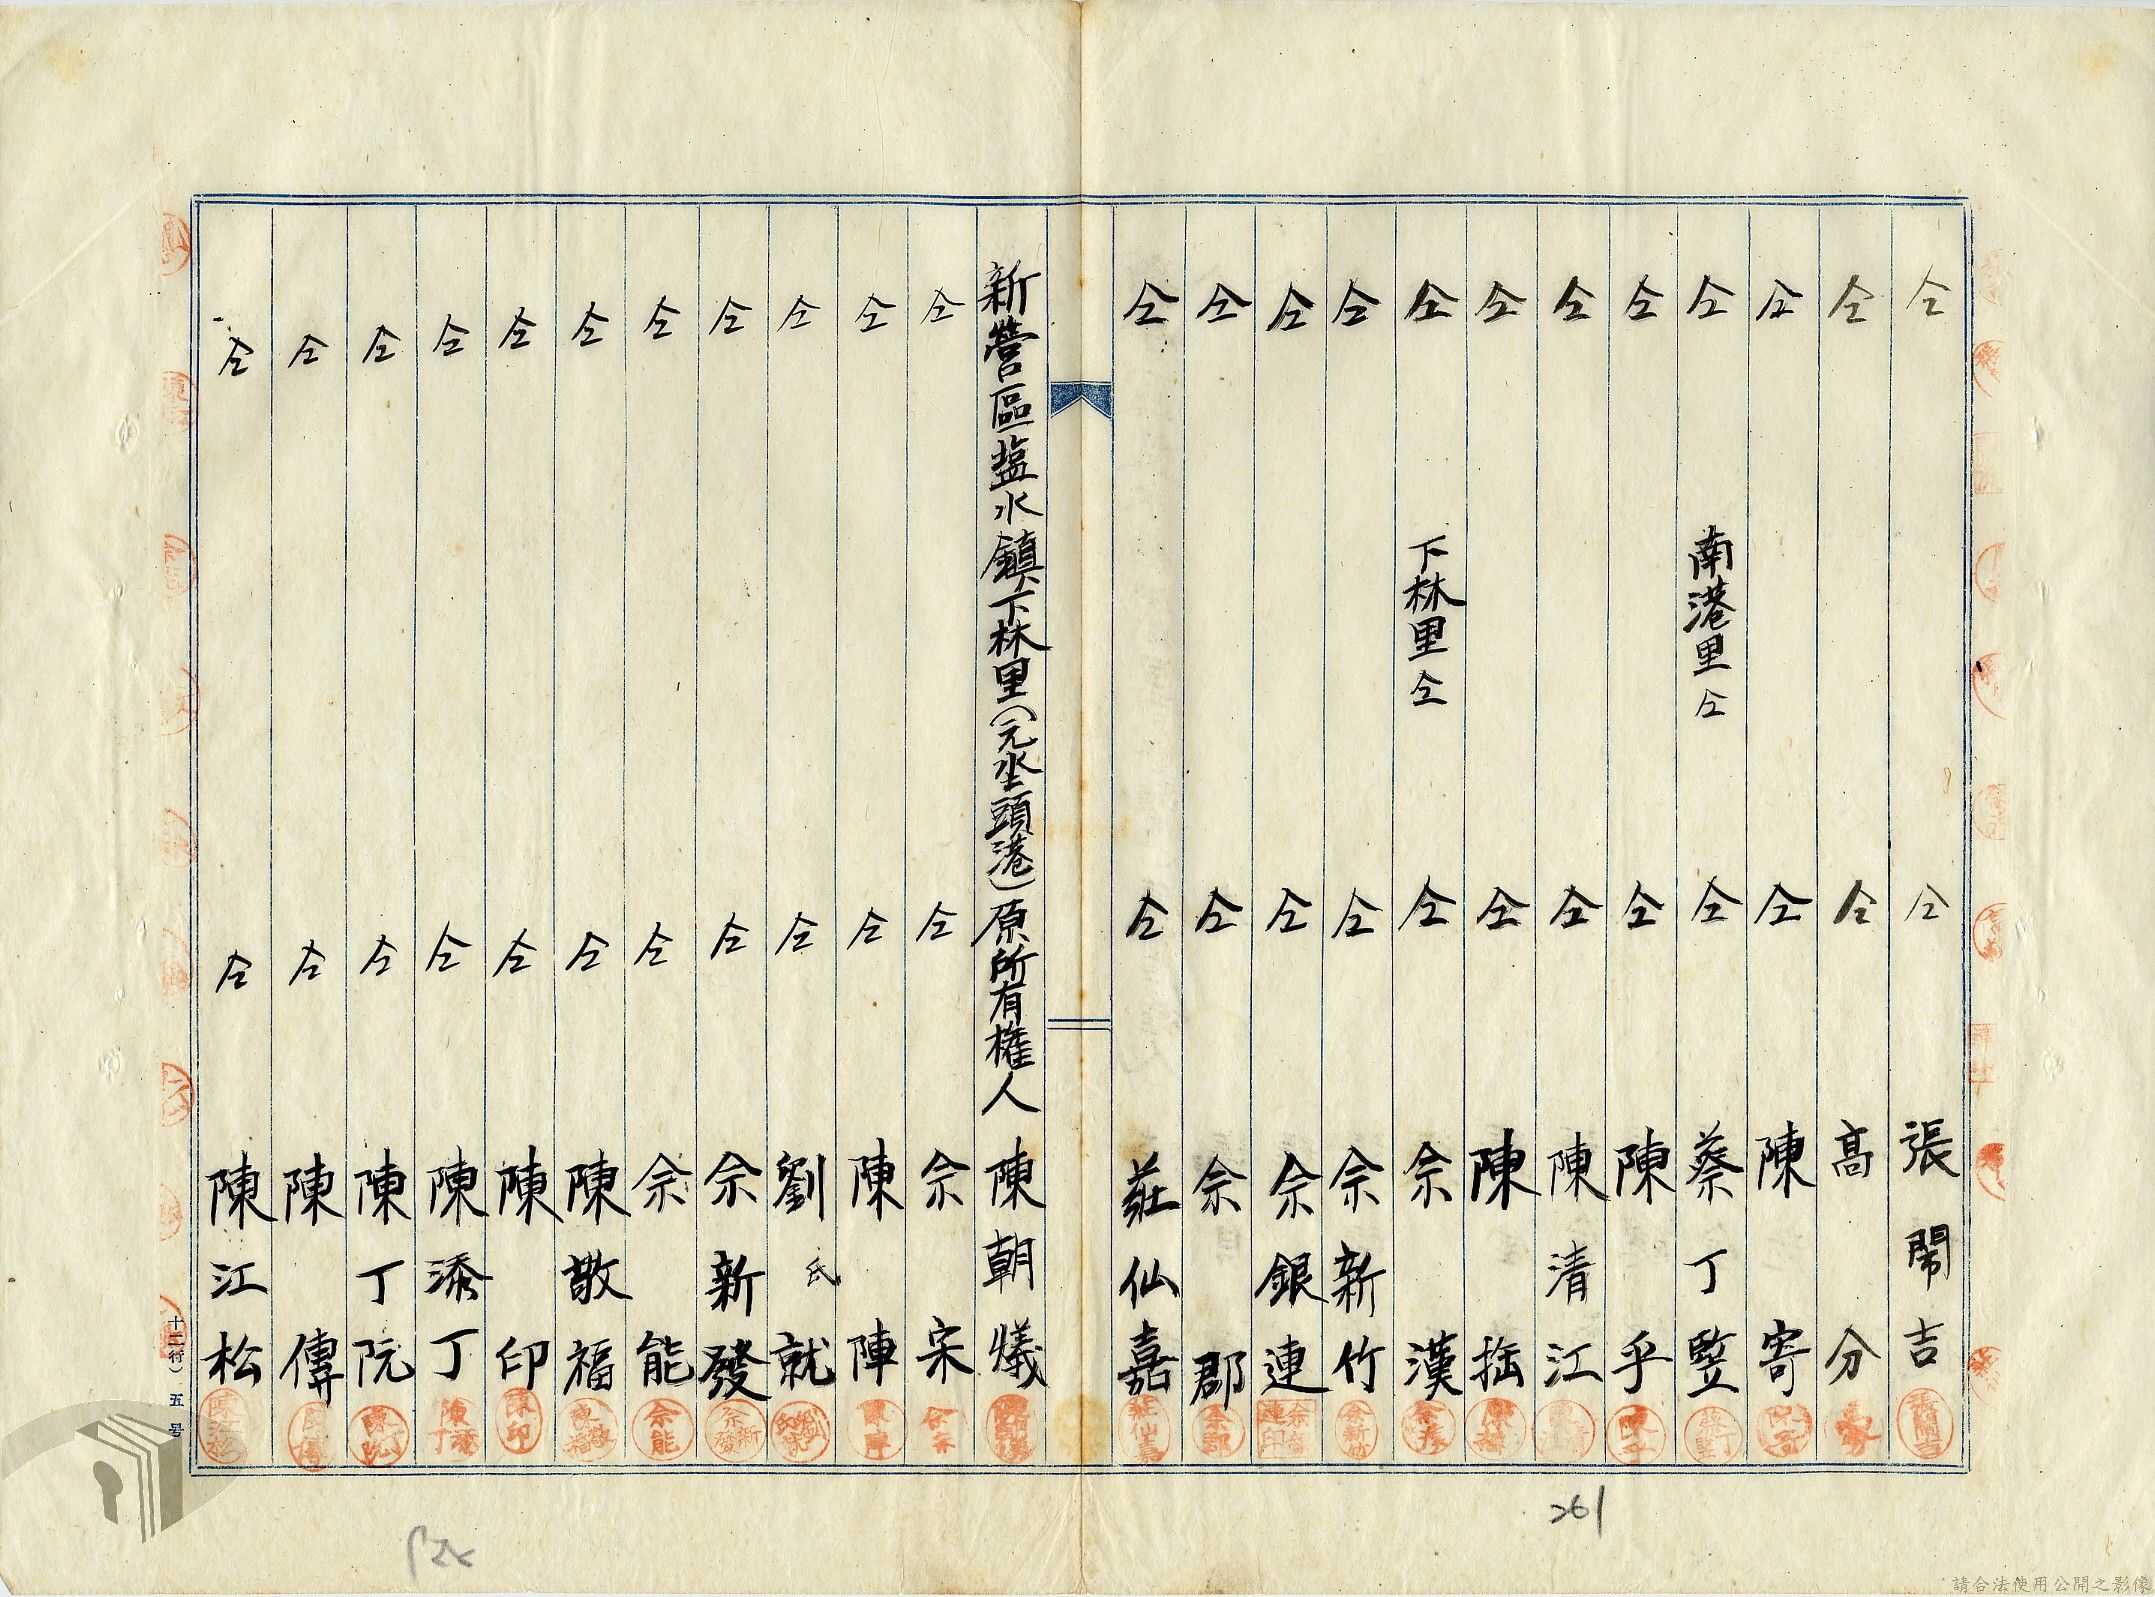 仝 仝 張鬧吉
仝 仝 高分
仝 仝 陳寄
仝 南港里仝 仝 蔡丁竪
仝 仝 陳乎
仝 仝 陳清江
仝 仝 陳
仝 下林里仝 仝 佘漢
仝 仝 佘新竹
仝 仝 佘銀連
仝 仝 佘郡
仝 仝 莊仙嘉
新營區塩水鎮下林里(元坔頭港)原所有權人 陳朝燨
仝 仝 佘宋
仝 仝 陳陣
仝 仝 劉氏就
仝 仝 佘新發
仝 仝 佘能
仝 仝 陳敬福
仝 仝 陳印
仝 仝 陳添丁
仝 仝 陳丁阮
仝 仝 陳傳
仝 仝 陳江松
十二行) 五号
261
請合法使用公開之影像